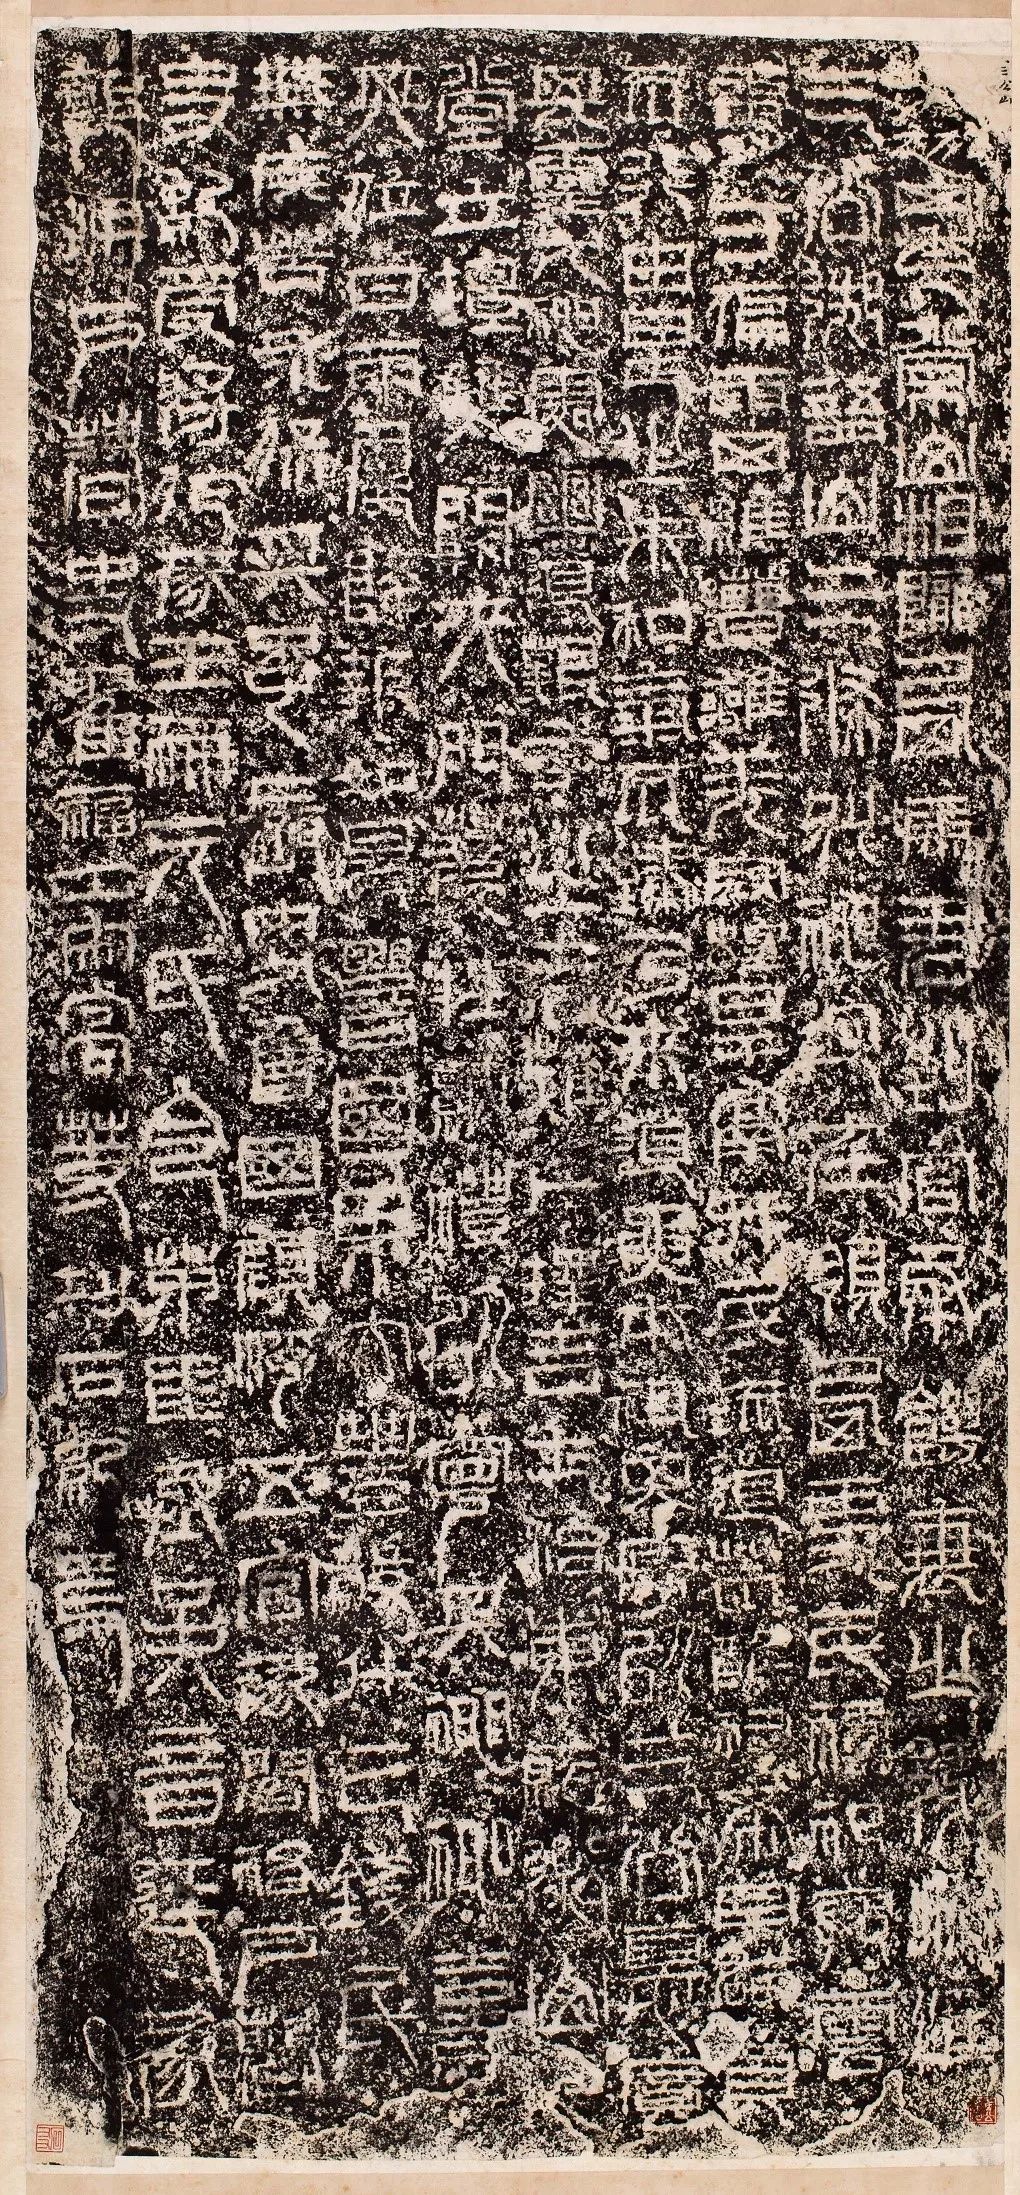 初四年常山相隴西馮君到官承饑衰之後惟
三公御語山三條別神迥在領西吏民禱祀興雲
膚寸徧雨四維遭離羌寇蝗旱鬲并民流道荒醮祠希罕奠
不行由是之來和氣不臻乃來道要本祖其原以三公德廣
其靈尤神處幽道艱存之者難卜擇吉治東就衡山
起堂立壇雙闕夾門薦牲納禮以寧其神神熹其
位甘雨屢降報如景響國界大豐穀斗三錢民
無疾苦永保其年長史魯國顏浮五官掾閻祐戶曹
史紀受將作掾王笧元氏令茅崖丞吳音廷掾
郭洪戶曹史翟福工宋高等刊石紀焉